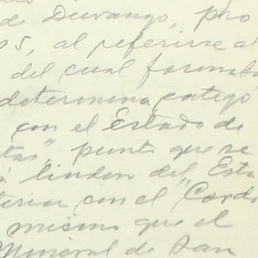 de Durango, pro
05, al referirse al
del cual formaba
determina categó
con el Estado de
tas", punto que se
linden del Esta
terior con el "Cordo
mismo que el
Mineral de San